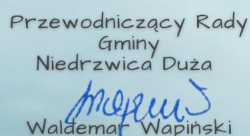 Przewodniczący Rady
Gminy
Niedrzwica Duża
Waldemar Wapiński